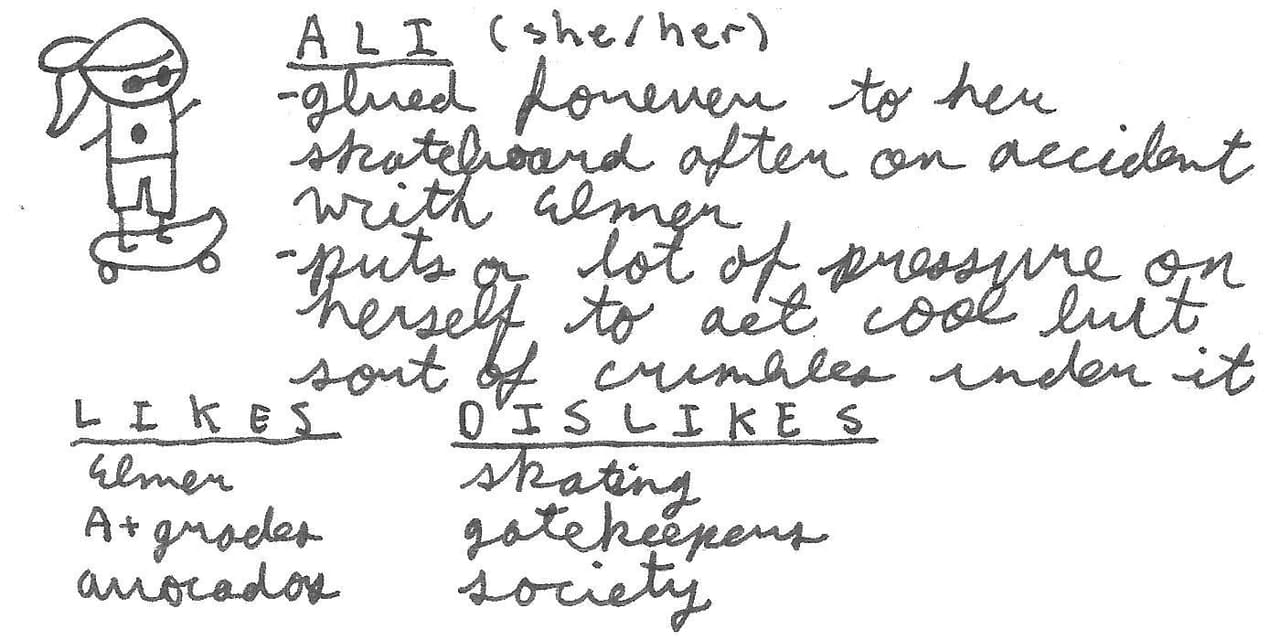 ALI (she/her)
-glued forever to her
skateboard after an accident
with Elmer
-puts a lot of pressure on
herself to act cool but
sort of crumbles under it
LIKES DISLIKES
Elmer skating
A+ grades gatekeepers
avocados society